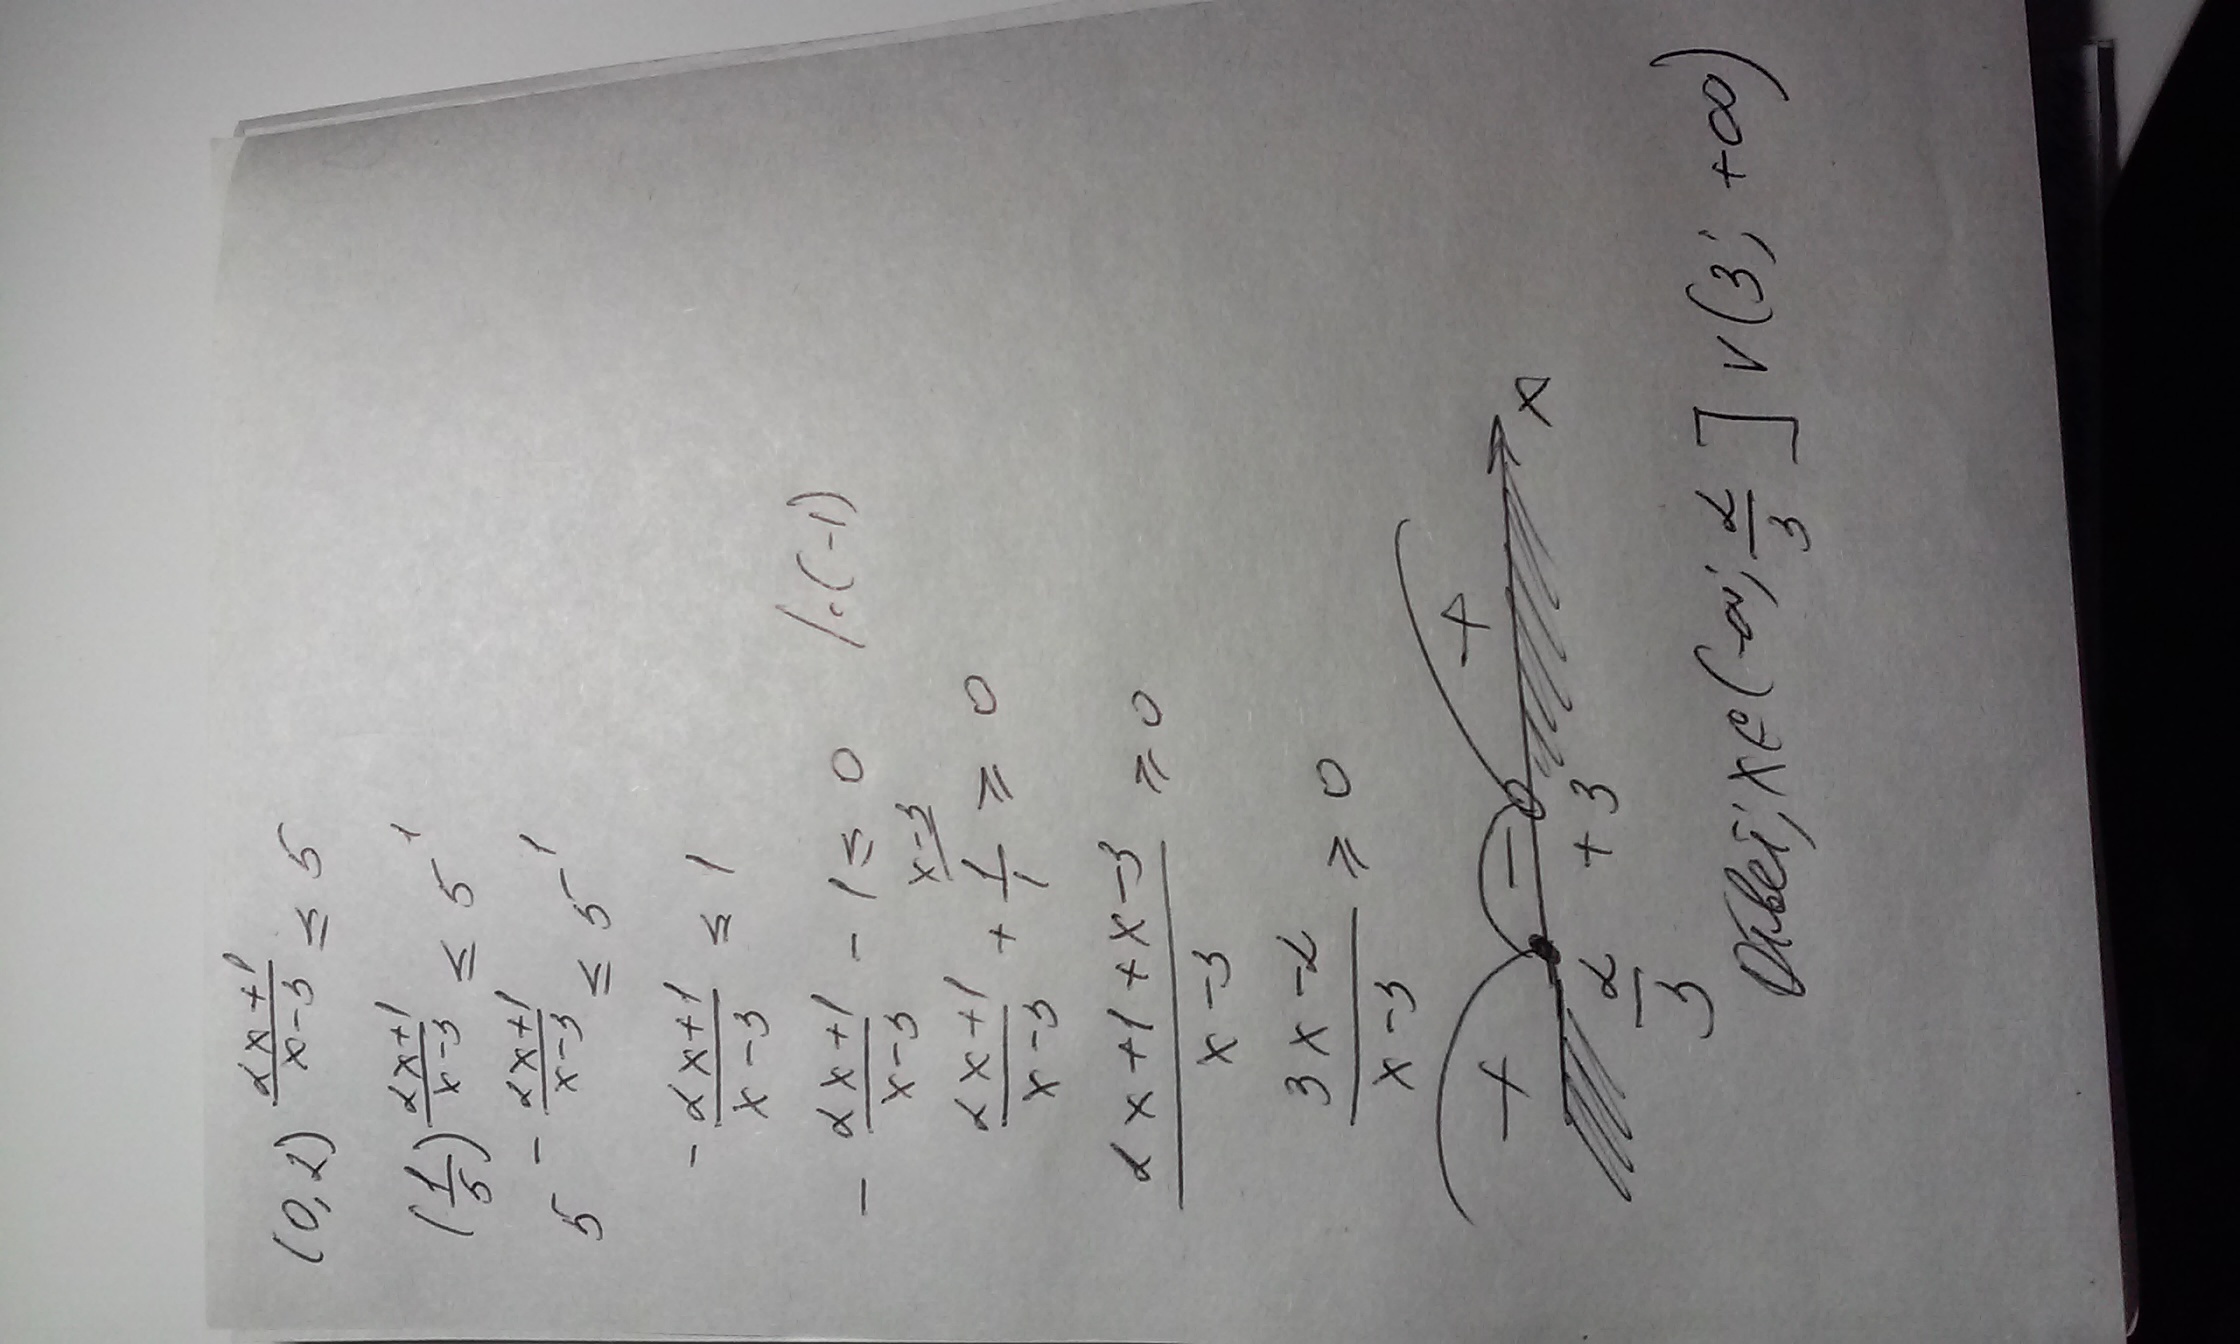 (0,2)^((2x+1)/(x-3)) ≤ 5
(1/5)^((2x+1)/(x-3)) ≤ 5^1
5^(-(2x+1)/(x-3)) ≤ 5^1
-(2x+1)/(x-3) ≤ 1
-(2x+1)/(x-3) - 1 ≤ 0 /·(-1)
(2x+1)/(x-3) + 1/1 ≥ 0 x-3
(2x+1+x-3)/(x-3) ≥ 0
(3x-2)/(x-3) ≥ 0
+ - + x
2/3 + 3
Ответ; x∈(-∞; 2/3]∨(3; +∞)